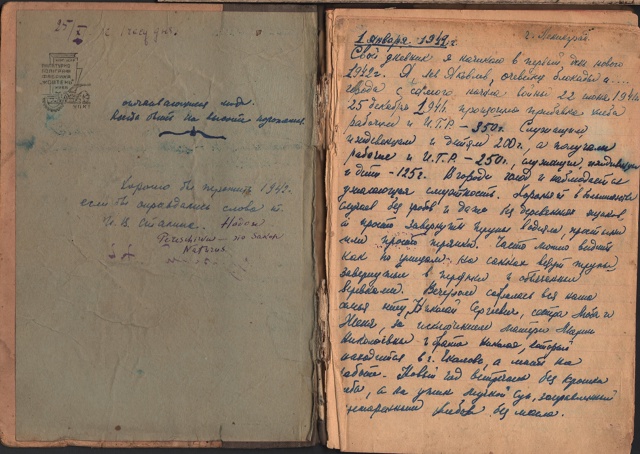 25/X
отчаивающиеся люди.
Когда бьют
Хорошо бы пережить 1943.
если бы оправдались слова т.
И. В. Сталина.
Pereschivu – no zakon
Naturis
г. Ленинград.
1 января 1942 г.
Свой дневник я начинаю в первый день нового
1942 г. Я, очевидец блокады
города с самого начала войны 22 июня 1941
25 декабря 1941 произошла прибавка хлеба
рабочим и И.Т.Р. – 350 г. Служащим
иждивенцам и детям 200 г., а получали
рабочие и И.Т.Р. – 250 г., служащие, иждивенцы
и дети – 125 г. В городе голод и наблюдается
ужасающая смертность. Хоронят в большинстве
случаев без гроба и даже без деревянных ящиков,
а просто завернут трупы в одеяла, простыни
или просто тряпки. Часто можно видеть
как по улицам на санках везут трупы
завернутые в и обвязанные
веревками. Вечером собралась вся наша
семья отец, Николай Сергеевич, сестра Люба и
Женя, за исключением матери Марии
Николаевны и брата Николая, который
находится в г. а мать на
работе. Новый год встретили без крошки
хлеба, а на ужин суп, заправленный
хлебом без масла.